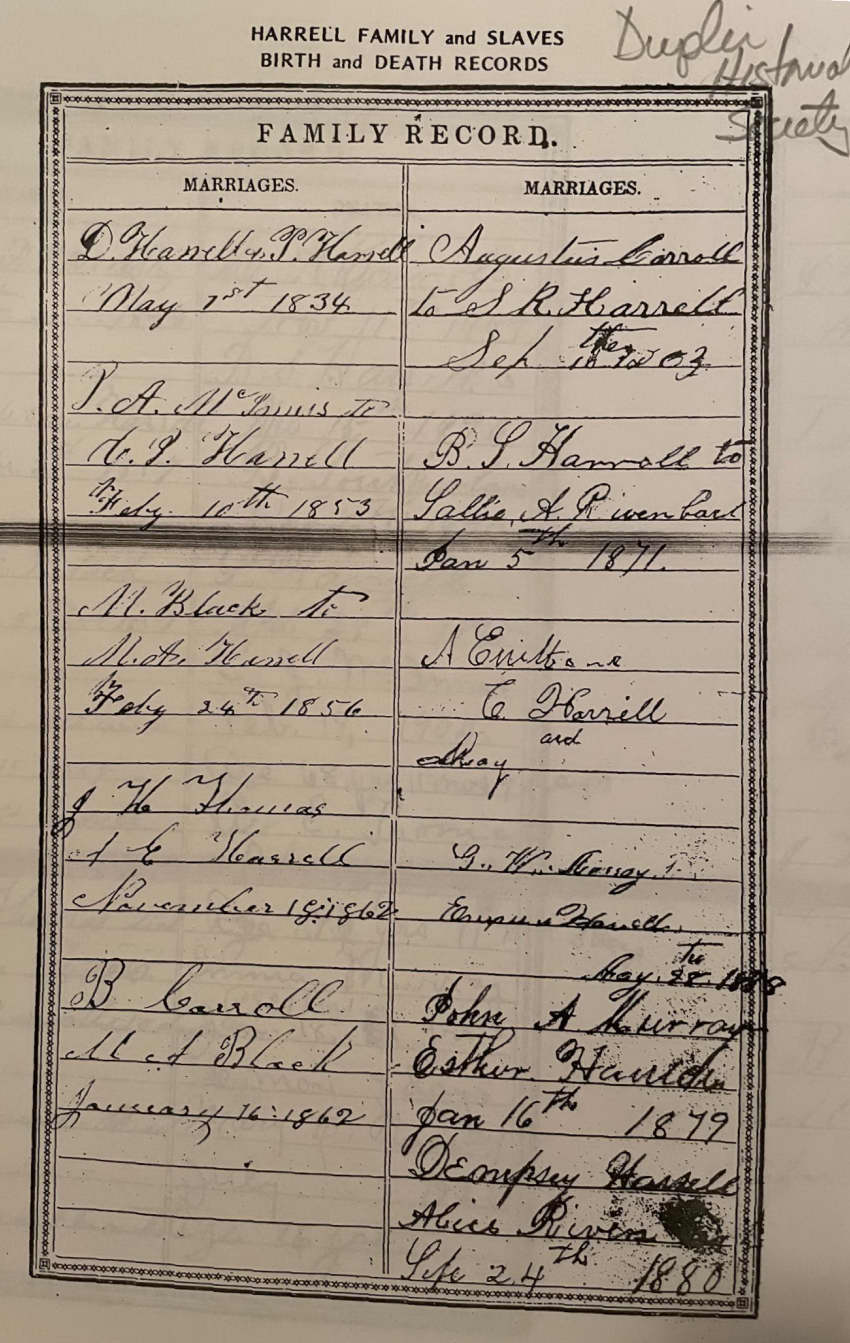 HARRELL FAMILY and SLAVES
BIRTH and DEATH RECORDS
Duplin
Historical
Society
FAMILY RECORD.
MARRIAGES.
D. Harrell & P. Harrell
May 1st 1834
P. A. McInnis to
C. P. Harrell
Feby 10th 1853
M. Black to
M. A. Harrell
Feby 24th 1856
J H Thomas
A E Harrell
November 1862
B Carroll
M A Black
January 16 1862
MARRIAGES.
Augustus Carroll
to S R Harrell
Sep
B. S. Harrell to
Sallie A. Rivenbark
Jan 5th 1871.
A
E Harrell
and
G. W.
Harrell
28
John A Murray
Esther
Jan 16th 1879
Dempsey Harrell
Alice Riven
24th 1880